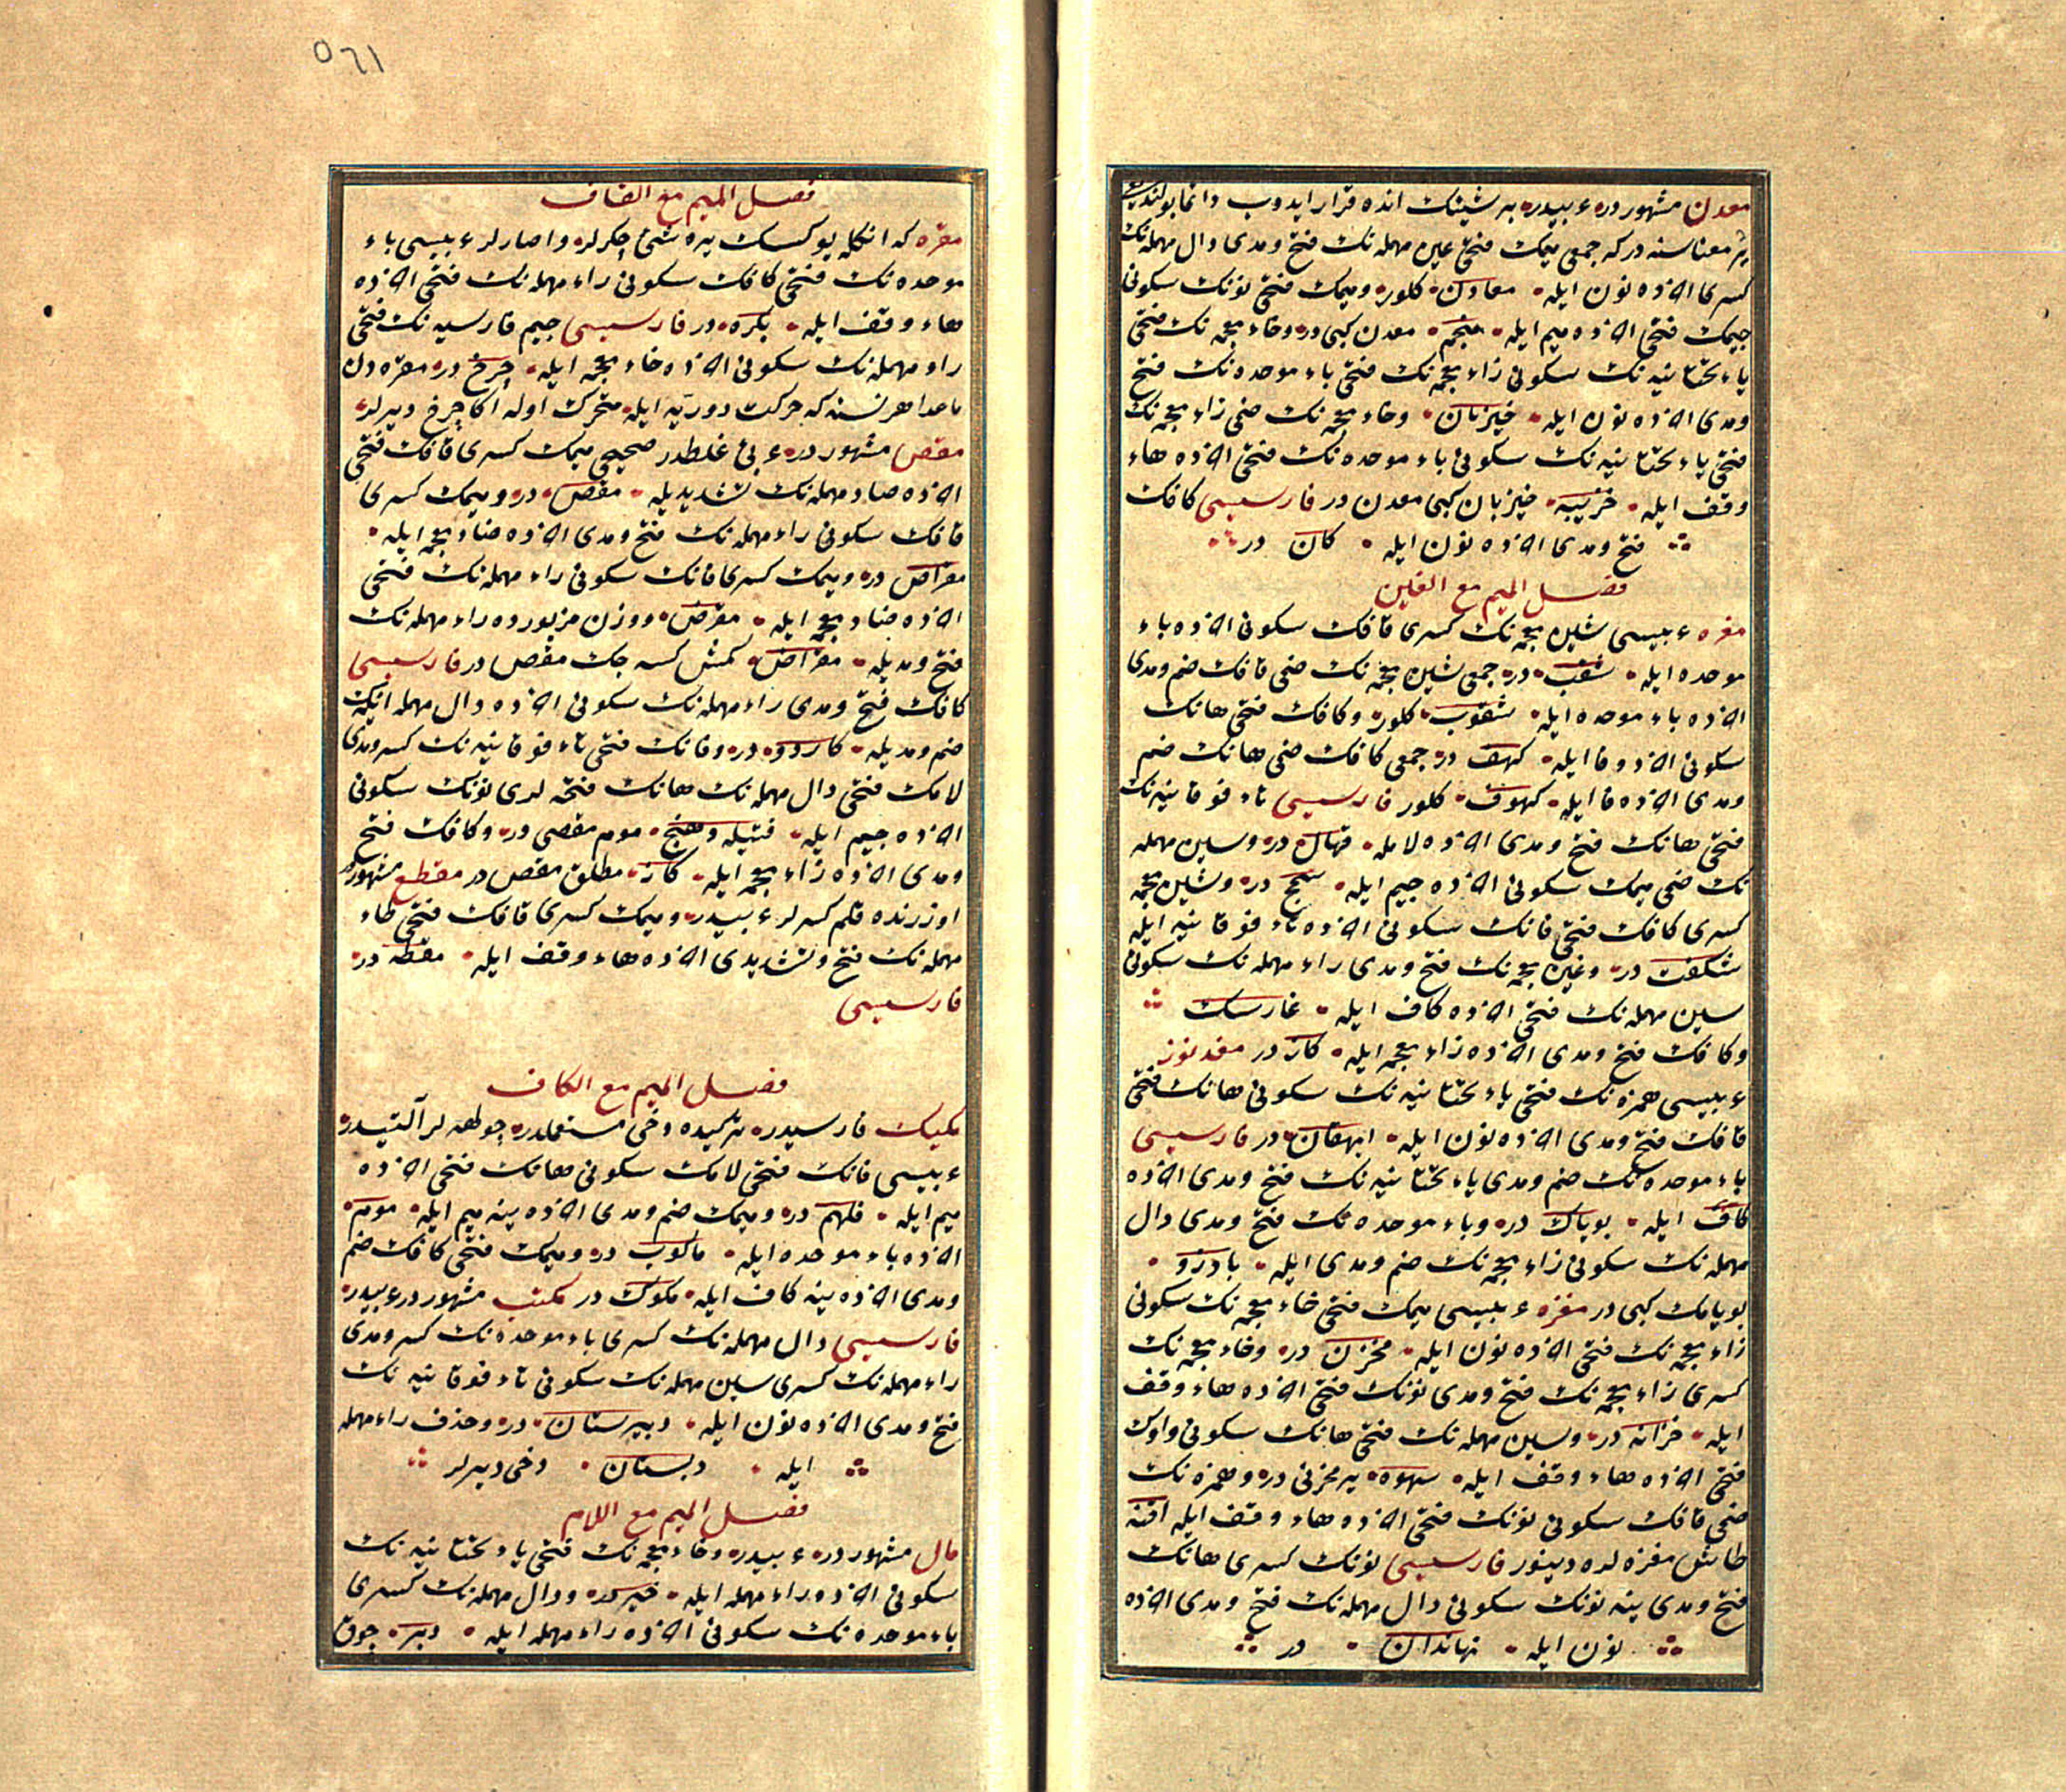 معدن مشهور در عربیدر بر شینك انده قرار ایدوب دائما بولندیغی
یر معناسنه در که جمعی میمك فتحی عین مهمله نك فتح و مدی دال مهمله نك
کسری آخرنده نون ایله معادن کلور و میمك فتحی نونك سکونی
جیمك فتحی آخرنده میم ایله منجم معدن کبی در و خاء معجمه نك فتحی
یاء تحتانیه نك سکونی زاء معجمه نك فتحی باء موحده نك فتح
و مدی آخرنده نون ایله خیزبان و خاء معجمه نك ضمی زاء معجمه نك
فتحی یاء تحتانیه نك سکونی باء موحده نك فتحی آخرنده هاء
وقف ایله خزیبه خیزبان کبی معدن در فارسیسی کافك
فتح و مدی آخرنده نون ایله کان در
فصل المیم مع الغین
مغره عربیسی شین معجمه نك کسری قافك سکونی آخرنده باء
موحده ایله شقب در جمعی شین معجمه نك ضمی قافك ضم و مدی
آخرنده باء موحده ایله شقوب کلور و کافك فتحی هانك
سکونی آخرنده فا ایله کهف در جمعی کافك ضمی هانك ضم
و مدی آخرنده فا ایله کهوف کلور فارسیسی تاء فوقانیه نك
فتحی هانك فتح و مدی آخرنده لامله تهال در و سین مهمله
نك ضمی میمك سکونی آخرنده جیم ایله سمج در و شین معجمه
کسری کافك فتحی فانك سکونی آخرنده تاء فوقانیه ایله
شکفت در و غین معجمه نك فتح و مدی راء مهمله نك سکونی
سین مهمله نك فتحی آخرنده کاف ایله غارسك
و کافك فتح و مدی آخرنده زاء معجمه ایله کاز در مغدنوز
عربیسی همزه نك فتحی یاء تحتانیه نك سکونی هانك فتحی
قافك فتح و مدی آخرنده نون ایله ایهقان در فارسیسی
باء موحده نك ضم و مدی یاء تحتانیه نك فتح و مدی آخرنده
کاف ایله بویاك در و باء موحده نك فتح و مدی دال
مهمله نك سکونی زاء معجمه نك ضم و مدی ایله بادزو
بویاك کبی در مغزه عربیسی میمك فتحی خاء معجمه نك سکونی
زاء معجمه نك فتحی آخرنده نون ایله مخزن در و خاء معجمه نك
کسری زاء معجمه نك فتح و مدی نونك فتحی آخرنده هاء وقف
ایله خزانه در و سین مهمله نك فتحی هانك سکونی واوك
فتحی آخرنده هاء وقف ایله سهوه یر مخزنی در و همزه نك
ضمی قافك سکونی نونك فتحی آخرنده هاء وقف ایله اقنه
طاش مغزه لره دینور فارسیسی نونك کسری هانك
فتح و مدی ینه نونك سکونی دال مهمله نك فتح و مدی آخرنده
نون ایله نهاندان در
١٦٥
فصل المیم مع القاف
مقره که انکله یوکسك یره شیئ چکرلر و اصارلر عربیسی باء
موحده نك فتحی کافك سکونی راء مهمله نك فتحی آخرنده
هاء وقف ایله بکره در فارسیسی جیم فارسیه نك فتحی
راء مهمله نك سکونی آخرنده خاء معجمه ایله چرخ در مقره دن
ماعدا هر نسنه که حرکت دوریه ایله متحرك اوله اکا چرخ دیرلر
مقص مشهور در عربی غلطدر صحیحی میمك کسری قافك فتحی
آخرنده صاد مهمله نك تشدیدیله مقص در و میمك کسری
قافك سکونی راء مهمله نك فتح و مدی آخرنده ضاد معجمه ایله
مقراض در و میمك کسری قافك سکونی راء مهمله نك فتحی
آخرنده ضاد معجمه ایله مقرض و وزن مزبورده راء مهمله نك
فتح و مدیله مقراض کمش کسه جك مقص در فارسیسی
کافك فتح و مدی راء مهمله نك سکونی آخرنده دال مهمله ایکنك
ضم و مدیله کاردو در و فانك فتحی تاء فوقانیه نك کسر و مدی
لامك فتحی دال مهمله نك هانك فتحه لری نونك سکونی
آخرنده جیم ایله موم مقصی در و کافك فتح
و مدی آخرنده زاء معجمه ایله کاز مطلق مقص در مقطع مشهور در
اوزرنده قلم کسرلر عربیدر و میمك کسری قافك فتحی طاء
مهمله نك فتح و تشدیدی آخرنده هاء وقف ایله مقطه در
فارسیسی
فصل المیم مع الکاف
مکیك فارسیدر ترکیده دخی مستعملدر جولهه لر آلتیدر
عربیسی فانك فتحی لامك سکونی هانك فتحی آخرنده
میم ایله فلهم در و میمك ضم و مدی آخرنده ینه میم ایله موم
آخرنده باء موحده ایله ماکوب در و میمك فتحی کافك ضم
و مدی آخرنده ینه کاف ایله مکوك در مکتب مشهور در عربیدر
فارسیسی دال مهمله نك کسری باء موحده نك کسر و مدی
راء مهمله نك کسری سین مهمله نك سکونی تاء فوقانیه نك
فتح و مدی آخرنده نون ایله دبیرستان در و حذف راء مهمله
ایله دبستان دخی دیرلر
فصل المیم مع اللام
مال مشهور در عربیدر و خاء معجمه نك فتحی یاء تحتانیه نك
سکونی آخرنده راء مهمله ایله خیر در و دال مهمله نك کسری
باء موحده نك سکونی آخرنده راء مهمله ایله دبر چوق